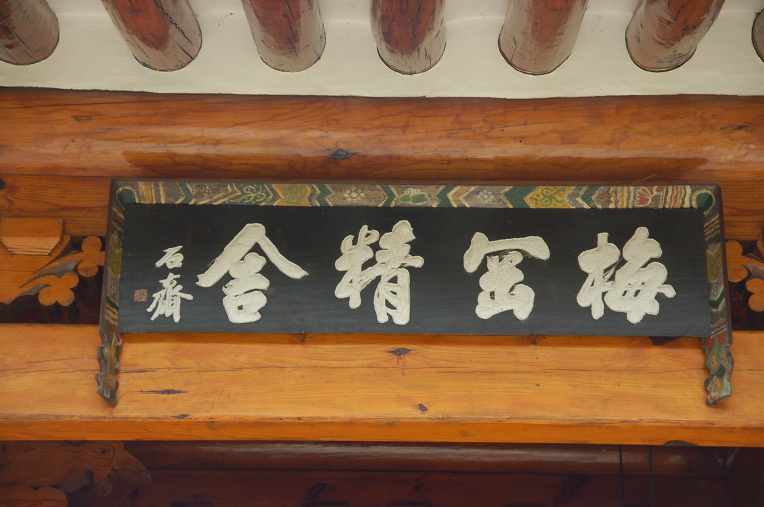 梅岡精舍
石齋